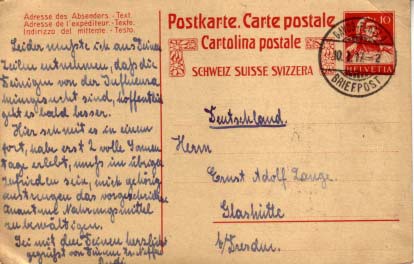 Adresse des Absenders. - Text.
Adresse de l'expéditeur. - Texte.
Indirizzo del mittente. - Testo.
Postkarte. Carte postale
Cartolina postale
SCHWEIZ SUISSE SVIZZERA
10
HELVETIA
BRIEFPOST
Leider mußte ich aus Deinen
Zeilen entnehmen, daß die
Deinigen von der Influenza
heimgesucht sind, hoffentlich
geht es bald besser.
Hier schneit es in einem
fort, habe erst 2 volle Sonnen
tage erlebt, muß im übrigen
zufrieden sein, mich gehörig
anstrengen das vorgeschriebene
Quantum Nahrungsmittel
zu bewältigen.
Sei mit den Deinen herzlichst
gegrüßt von Deinem
Deutschland.
Herrn
Ernst Adolf Lange.
Glashütte
b/Dresden.